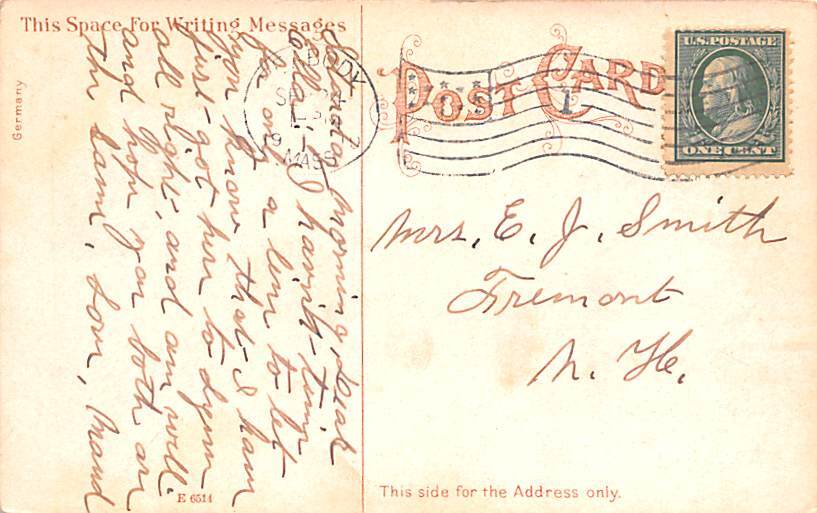 This Space For Writing Messages
POST CARD
U.S. POSTAGE
ONE CENT
PEABODY
MASS
1
Germany
Monday Morning, Dear
Ella:- I havn't time
for only a line to let
you know that I have
just got here to Lynn
all right, and am well
and hope you both are
the same, Love, Maud
Mrs. E. J. Smith
Fremont
N. H.
E 6514
This side for the Address only.